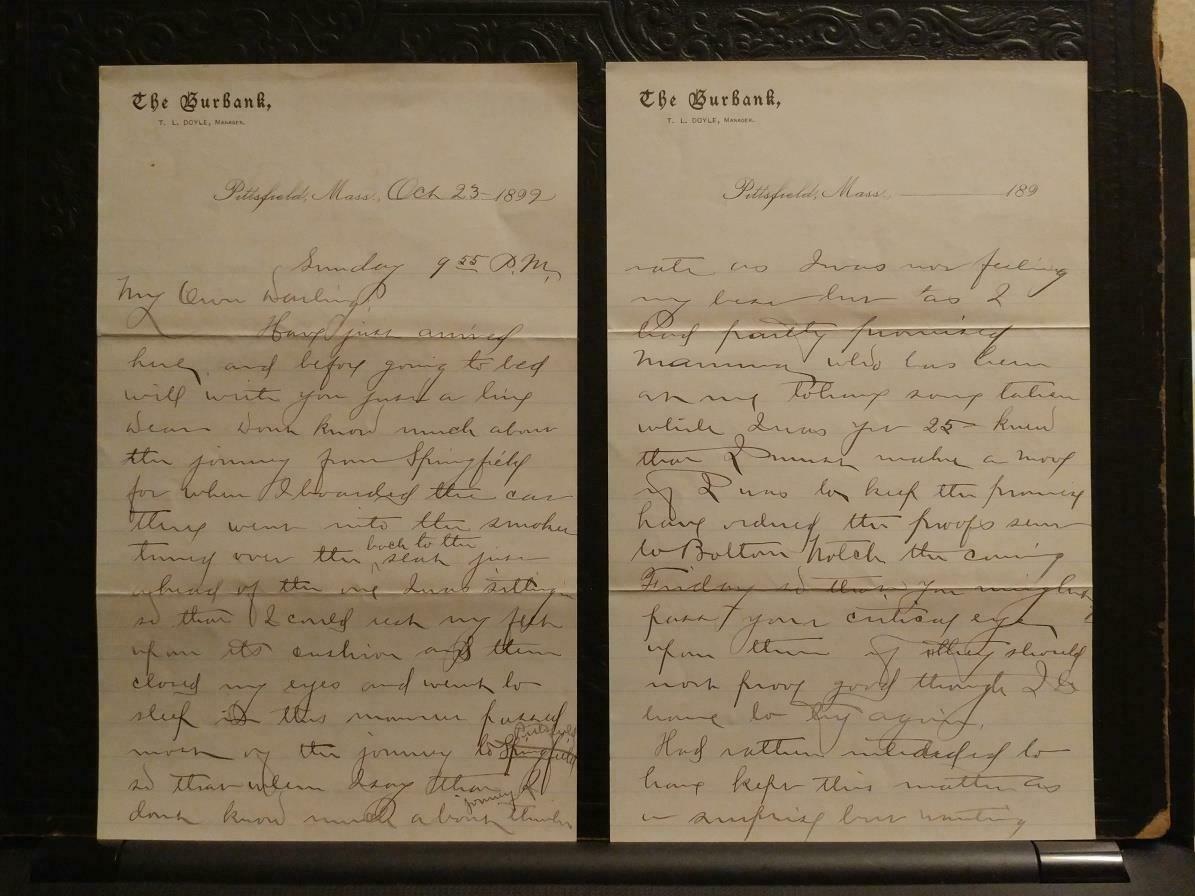 The Burbank,
T. L. DOYLE, MANAGER.
Pittsfield, Mass., Oct 23 1899
Sunday 9 55 P.M.
My Own Darling
Have just arrived
here, and before going to bed
will write you just a line
Dear. Dont know much about
the journey from Springfield
for when I boarded the car
there went into the smoker
turned over the back to the seat just
ahead of the one I was sitting in
so that I could rest my feet
upon its cushion and then
closed my eyes and went to
sleep in this manner passed
most of the journey to Springfield Pittsfield
so that when I say that I
dont know much about journey
The Burbank,
T. L. DOYLE, MANAGER.
Pittsfield, Mass., 189
rate as I was not feeling
my best but as I
had partly promised
Mamma who has been
at me to have some taken
while I was yet 25 knew
that I must make a move
if I was to keep the promise
have ordered the proofs sent
to Bolton Notch the coming
Friday so that you might
pass your critical eye
upon them if they should
not prove good though I'll
have to try again.
Had rather intended to
have kept this matter as
a surprise but wanting